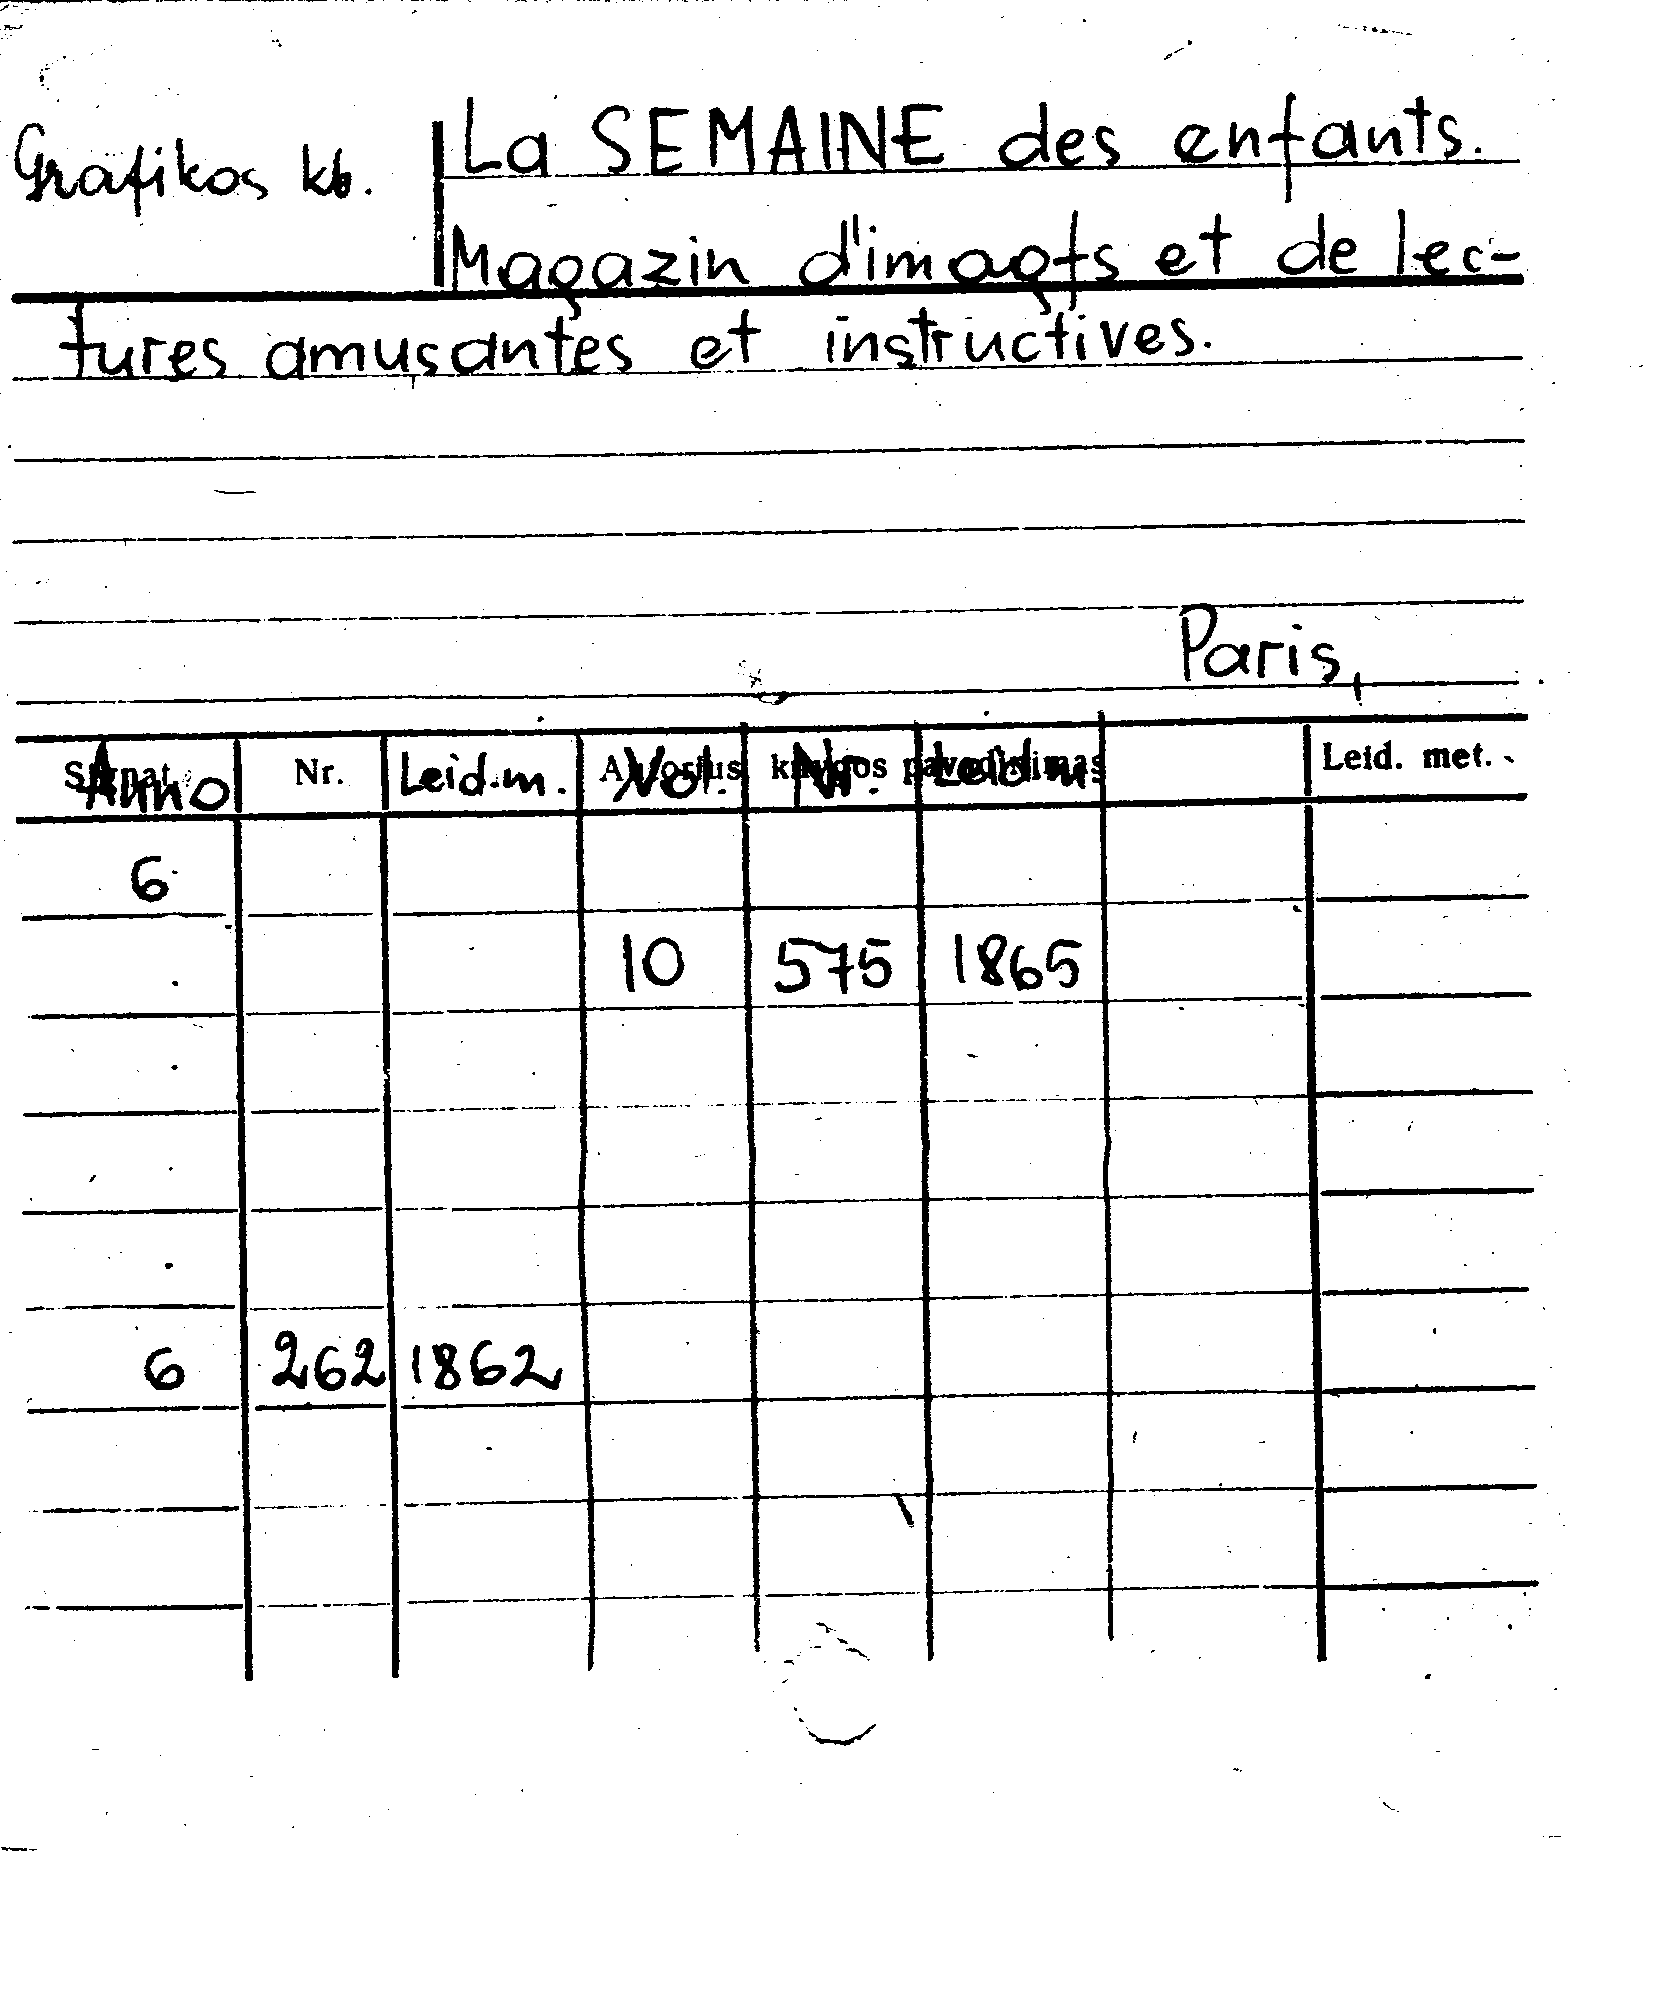 Grafikos kb. La SEMAINE des enfants.
Magazin d'imagts et de lec-
tures amusantes et instructives.
Paris,
Anno Nr. Leid.m. Vol. Nr. Leid m Leid. met.
6
10 575 1865
6 262 1862